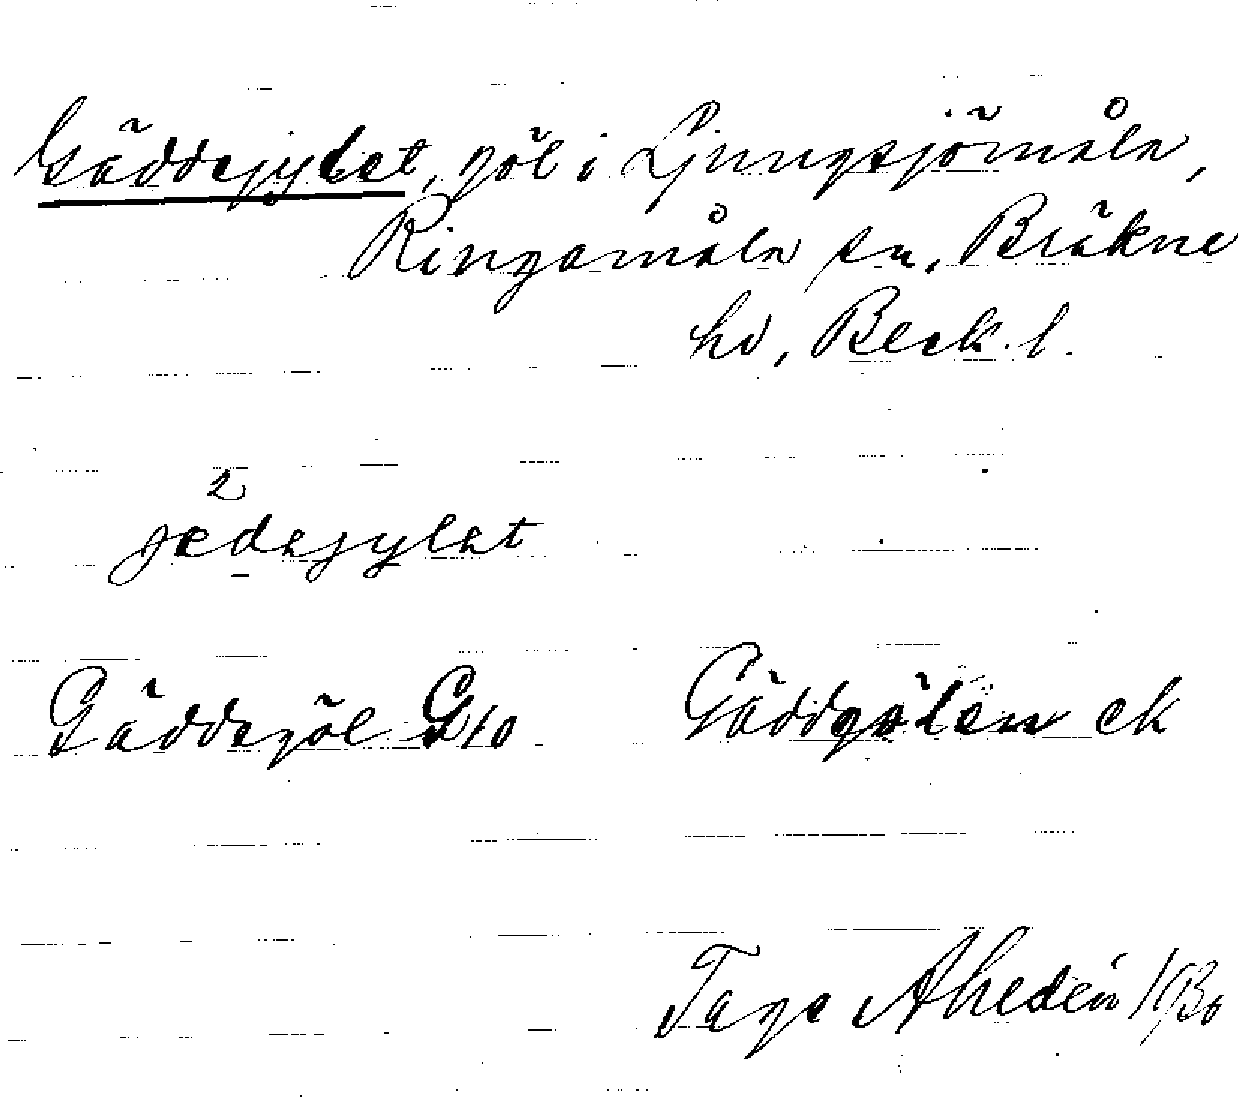 Gäddejylet, göl i Ljungsjömåla,
Ringamåla sn, Bräkne
hd, Blek. l.
2
jædajylet
Gäddegöl G10 Gäddgölen ek
Tage Ahldén 1930